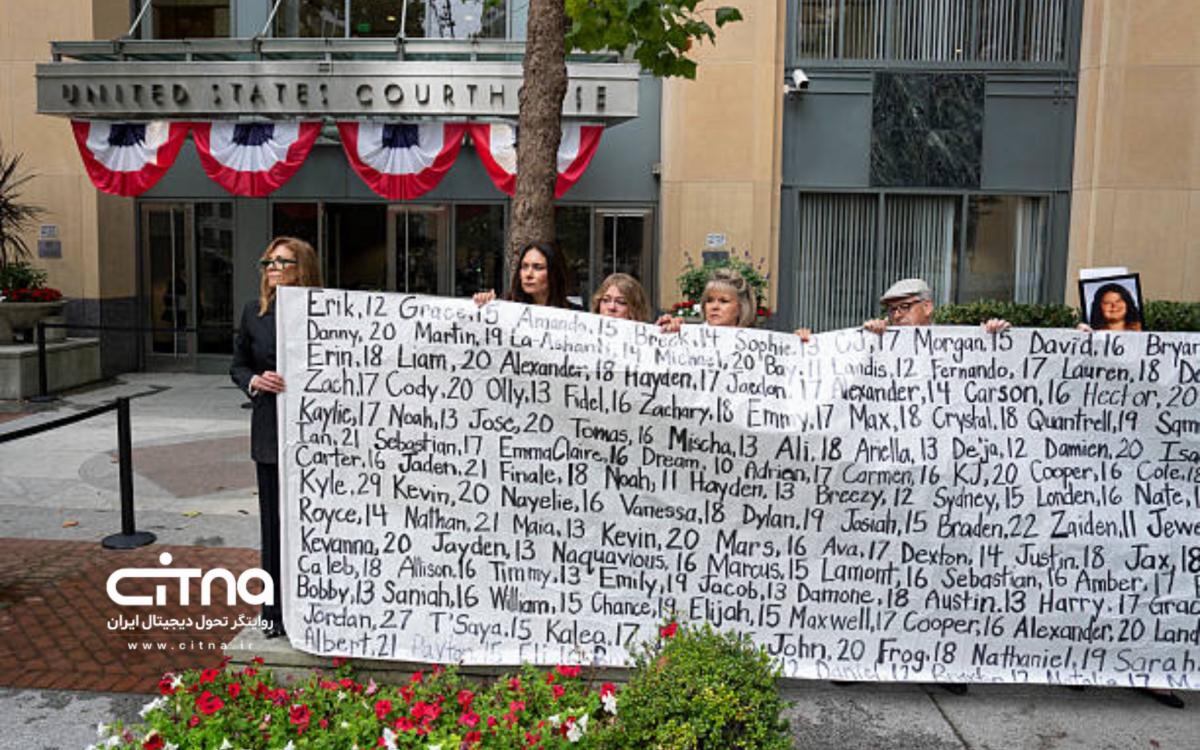 UNITED STATES COURTHOUSE
Erik,12 Grace,15 Amanda,15 Breck,14 Sophie,13 CJ,17 Morgan,15 David,16 Bryan
Danny,20 Martin,19 La-Ashanti,14 Michael,20 Bay,11 Landis,12 Fernando,17 Lauren,18
Erin,18 Liam,20 Alexander,18 Hayden,17 Jaedon,17 Alexander,14 Carson,16 Hector,20
Zach,17 Cody,20 Olly,13 Fidel,16 Zachary,18 Emmy,17 Max,18 Crystal,18 Quantrell,19 Sam
Kaylie,17 Noah,13 Jose,20 Tomas,16 Mischa,13 Ali,18 Ariella,13 De'ja,12 Damien,20 Isa
Ian,21 Sebastian,17 EmmaClaire,16 Dream,10 Adrian,17 Carmen,16 KJ,20 Cooper,16 Cole,
Carter,16 Jaden,21 Finale,18 Noah,11 Hayden,13 Breezy,12 Sydney,15 Londen,16 Nate,1
Kyle,29 Kevin,20 Nayelie,16 Vanessa,18 Dylan,19 Josiah,15 Braden,22 Zaiden,11 Jewe
Royce,14 Nathan,21 Maia,13 Kevin,20 Mars,16 Ava,17 Dexton,14 Justin,18 Jax,18
Kevanna,20 Jayden,13 Naquavious,16 Marcus,15 Lamont,16 Sebastian,16 Amber,17
Caleb,18 Allison,16 Timmy,13 Emily,19 Jacob,13 Damone,18 Austin,13 Harry,17 Grac
Bobby,13 Saniah,16 William,15 Chance,19 Elijah,15 Maxwell,17 Cooper,16 Alexander,20 Land
Jordan,27 T'Saya,15 Kalea,17 John,20 Frog,18 Nathaniel,19 Sarah,
Albert,21 Payton,15 Daniel,17
CITNA
روایتگر تحول دیجیتال ایران
www.citna.ir